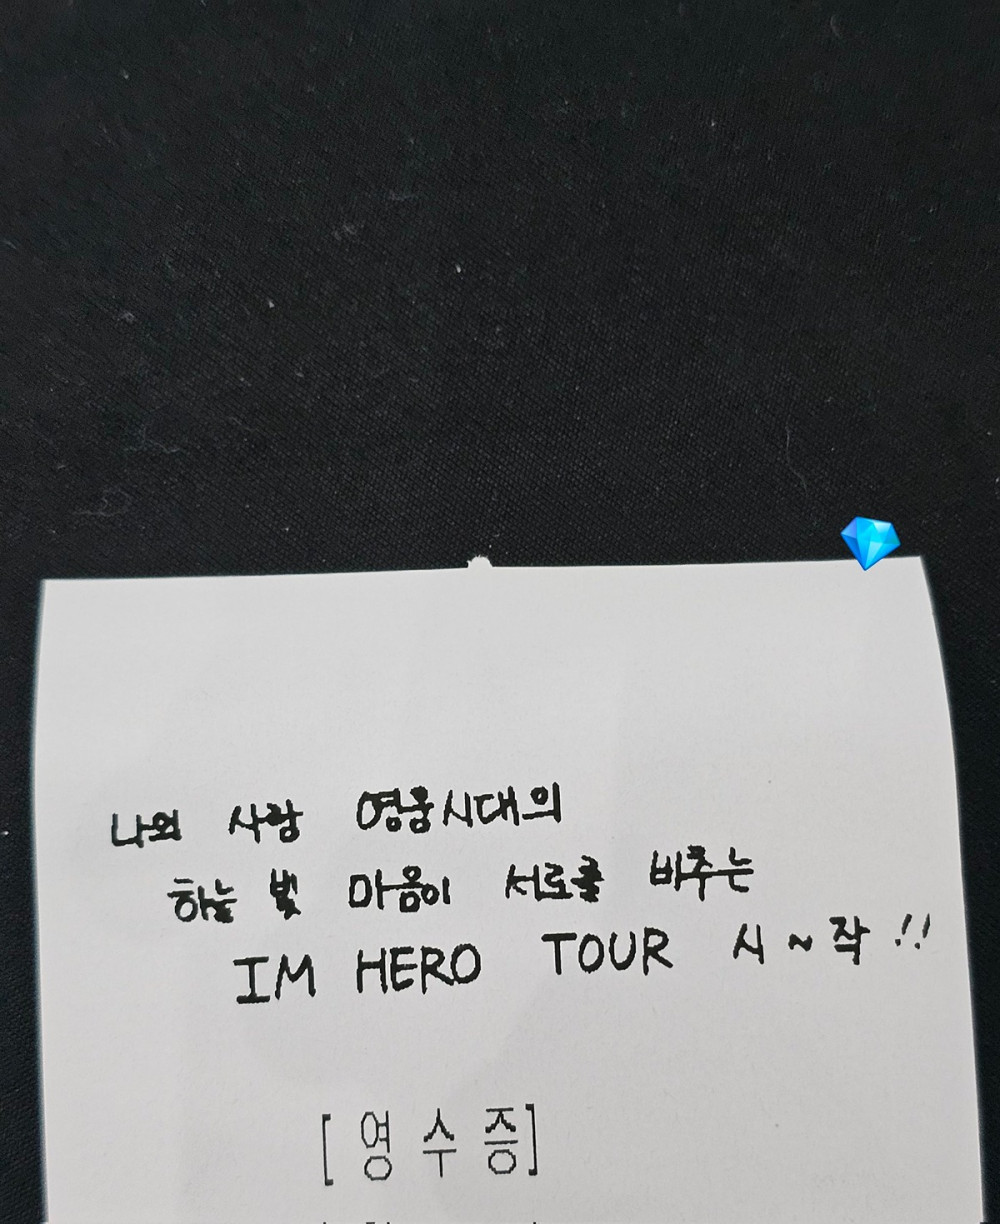 나의 사랑 영웅시대의
하늘 빛 마음이 서로를 비추는
IM HERO TOUR 시~작!!
[영수증]